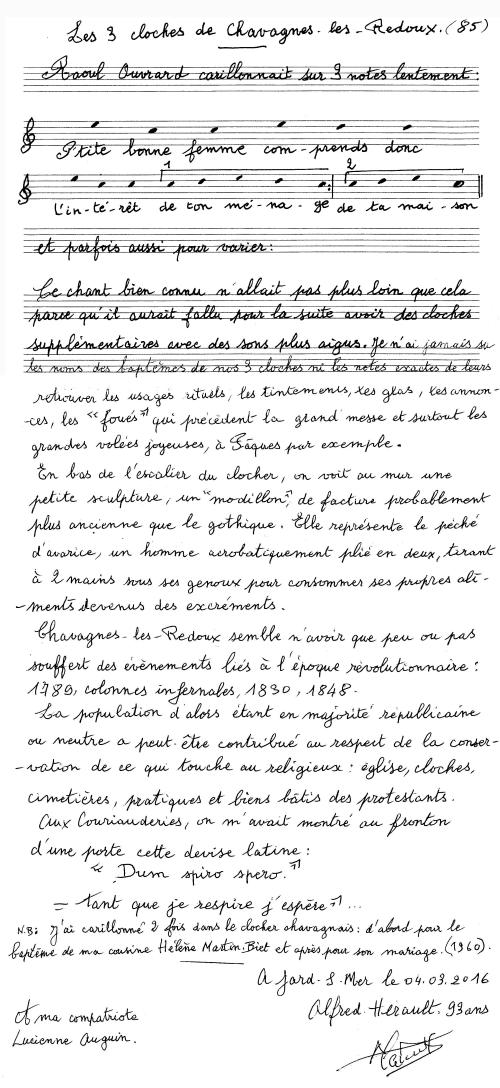 Les 3 cloches de Chavagnes-les-Redoux. (85)
Raoul Ouvrard carillonnait sur 3 notes lentement :
P'tite bonne femme com - prends donc
1 2
L'in-té-rêt de ton mé-na-ge de ta mai-son
et parfois aussi pour varier :
Ce chant bien connu n'allait pas plus loin que cela
parce qu'il aurait fallu pour la suite avoir des cloches
supplémentaires avec des sons plus aigus. Je n'ai jamais su
les noms des baptêmes de nos 3 cloches ni les notes exactes de leurs
retrouver les usages rituels, les tintements, les glas, les annon-
-ces, les "foués" qui précèdent la grand'messe et surtout les
grandes volées joyeuses, à Pâques par exemple.
En bas de l'escalier du clocher, on voit au mur une
petite sculpture, un "modillon", de facture probablement
plus ancienne que le gothique. Elle représente le péché
d'avarice, un homme acrobatiquement plié en deux, tirant
à 2 mains sous ses genoux pour consommer ses propres ali-
-ments devenus des excréments.
Chavagnes-les-Redoux semble n'avoir que peu ou pas
souffert des évènements liés à l'époque révolutionnaire :
1789, colonnes infernales, 1830, 1848.
La population d'alors étant en majorité républicaine
ou neutre a peut-être contribué au respect de la conser-
-vation de ce qui touche au religieux : église, cloches,
cimetières, pratiques et biens bâtis des protestants.
Aux Couriauderies, on m'avait montré au fronton
d'une porte cette devise latine :
" Dum spiro spero. "
= tant que je respire j'espère " ...
N.B : J'ai carillonné 2 fois dans le clocher chavagnais : d'abord pour le
baptême de ma cousine Hélène Martin-Biet et après pour son mariage. (1960).
A Jard-S-Mer le 04.03.2016
Alfred Hérault. 93 ans
Et ma compatriote
Lucienne Auguin.